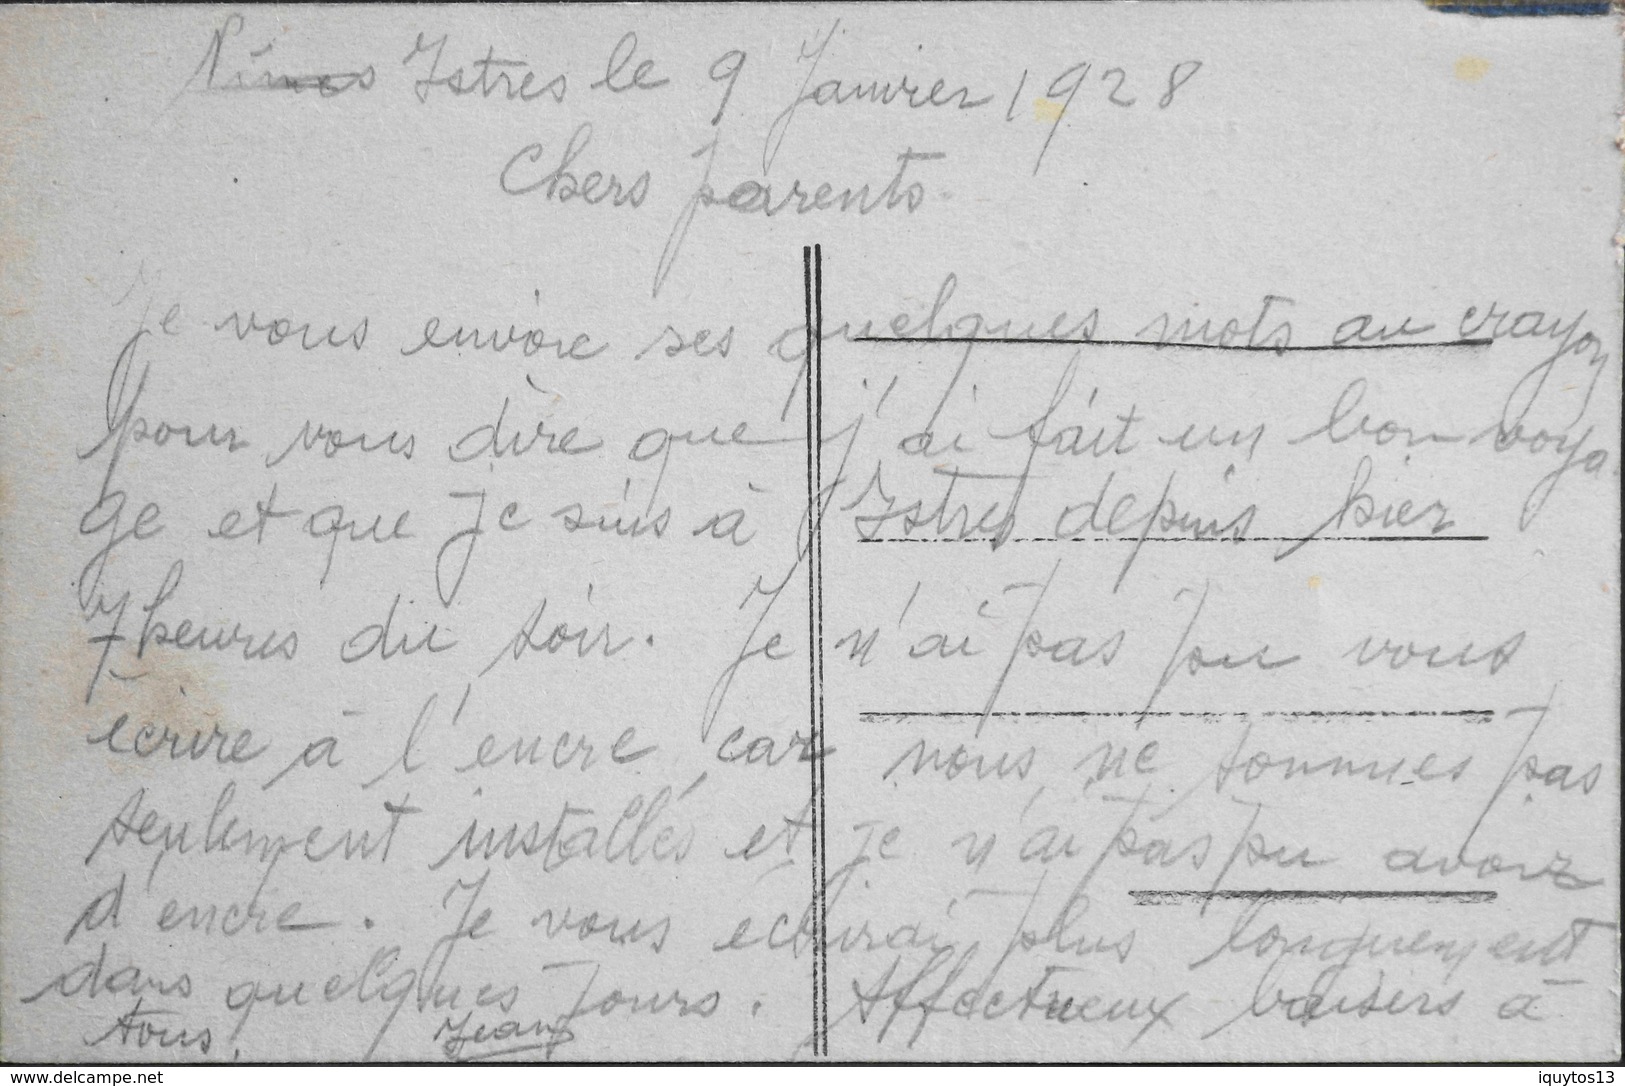 Nimes Istres le 9 Janvier 1928
Chers parents
Je vous envoie ses quelques mots au crayon
pour vous dire que j'ai fait un bon voya
ge et que je suis à Istres depuis hier
7 heures du soir. Je n'ai pas pu vous
ecrire à l'encre car nous ne sommes pas
seulement installés et je n'ai pas pu avoir
d'encre. Je vous écrirai plus longuement
dans quelques jours. Affectueux baisers à
tous. Jean
www.delcampe.net
iquytos13